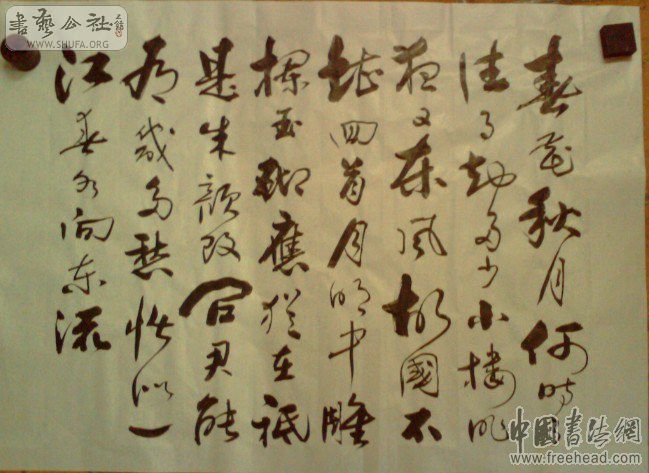 書藝公社
WWW.SHUFA.ORG
春花秋月何時了
往事知多少小樓昨
夜又東風故國不
堪回首月明中雕
欄玉砌應猶在祗
是朱顏改問君能
有幾多愁恰似一
江春水向東流
中國書法網
www.freehead.com